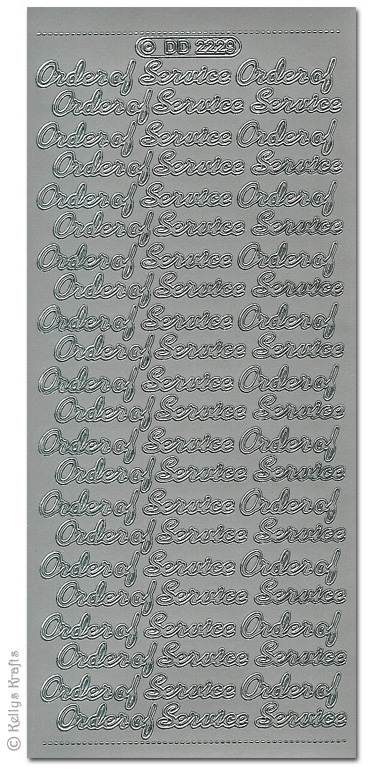 © DD 2229
Order of Service Order of
Order of Service Service
Order of Service Order of
Order of Service Service
Order of Service Order of
Order of Service Service
Order of Service Order of
Order of Service Service
Order of Service Order of
Order of Service Service
Order of Service Order of
Order of Service Service
Order of Service Order of
Order of Service Service
Order of Service Order of
Order of Service Service
Order of Service Order of
Order of Service Service
Order of Service Order of
Order of Service Service
Order of Service Order of
Order of Service Service
© Kellys Krafts